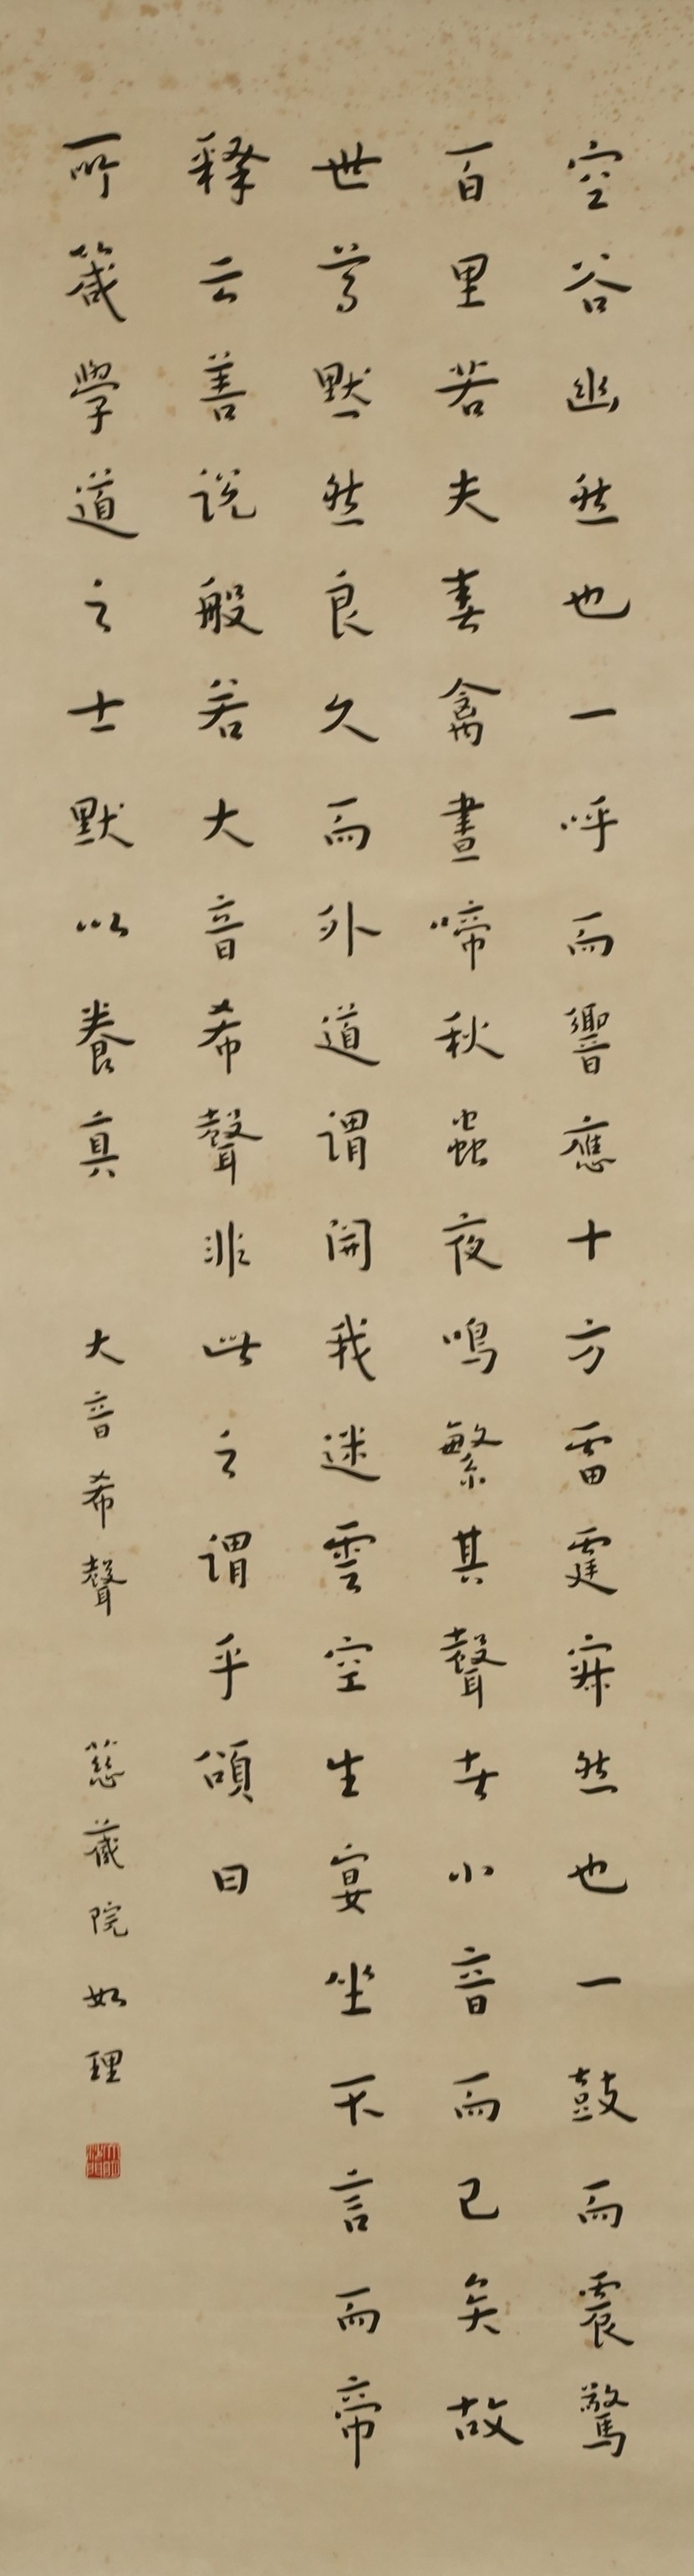 空谷幽然也一呼而響應十方雷霆寂然也一鼓而震驚
百里若夫春禽晝啼秋蟲夜鳴繁其聲者小音而已矣故
世尊默然良久而外道謂開我迷雲空生宴坐不言而帝
釋云善説般若大音希聲非此之謂乎頌曰
所箴學道之士默以養真
大音希聲
慈蔵院如理